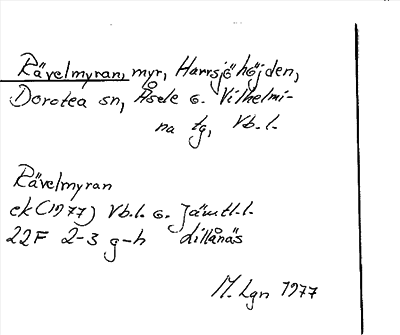 Rävelmyran, myr, Harrsjöhöjden,
Dorotea sn, Åsele o. Vilhelmi-
na tg, Vb. l.
Rävelmyran
ek (1977) Vb. l. o. Jämtl. l.
22F 2-3 g-h Lillånäs
M. Lgn 1977